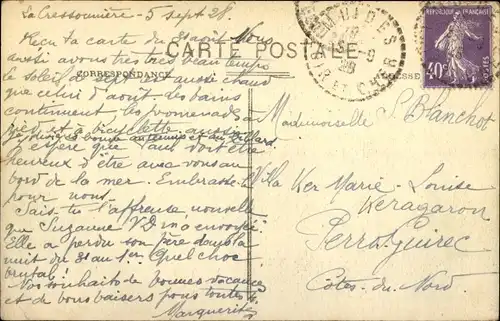 La Cressonnière - 5 sept 28.
Reçu ta carte du 31 août. Nous
CARTE POSTALE
aussi avons très très beau temps
le soleil de sept aussi chaud
CORRESPONDANCE
que celui d'août. Les bains
continuent les promenades à
à bicyclette aussi
J'espère que Paul doit être
heureux d'être avec vous au
bord de la mer. Embrasse-le
pour nous.
Sais-tu l'affreuse nouvelle
que Suzanne V D m'a envoyée
Elle a perdu son père dans la
nuit du 31 au 1er. Quel choc
brutal!
Nos souhaits de bonnes vacances
et de bons baisers pour toutes
Marguerite
REPUBLIQUE FRANÇAISE
40c
POSTES
LOIR ET CHER
ESSE
Mademoiselle S. Blanchot
Villa Ker Marie-Louise
Keragaron
Perros Guirec
Côtes-du-Nord